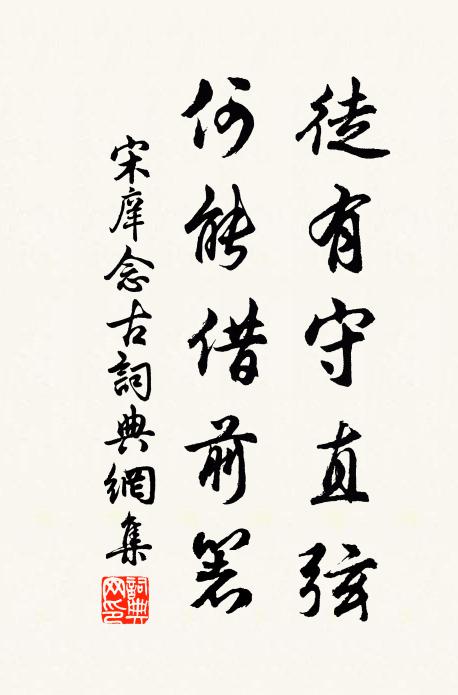 徒有守直弦
何能借前箸
宋庠念古詞典網集
詞典网印